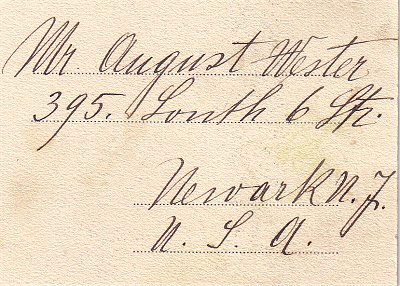 Mr August Wester
395. South 6 Str.
Newark N. J.
U. S. A.